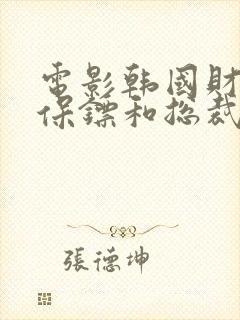 電影韩國財
保鏢和总裁
張德坤